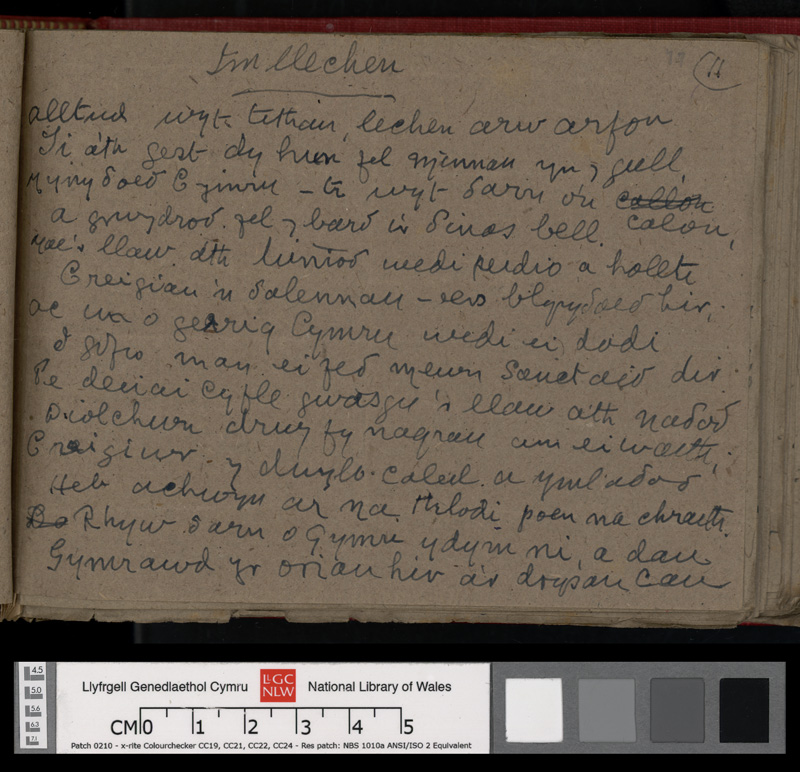 I'm llechen
11
alltud wyt tithau, lechen arw arfon
Ti a'th gest dy hun fel minnau yn y gell,
Mynyδoeδ Cymru – ti wyt δarn o'u callon
calon,
a grwydroδ fel y barδ i'r δinas bell.
Mae'r llaw a'th lunioδ wedi peidio a hollti
Creigiau'n δalennau – ers blynyδoeδ hir,
ac un o gerrig Cymru wedi ei dodi
I gofio man ei feδ mewn Sanctaiδ dir
Pe deuai cyfle gwasgu'r llaw a'th naδoδ
Diolchwn drwy fy nagrau am ei waith,
Creigiwr y dwylo caled a ymlaδoδ
Heb achwyn ar na thlodi poen na chraith.
Rhyw δarn o Gymru ydym ni, a dau
Gymrawd yr oriau hir a'r drysau cau
4.5
5.0
5.6
6.3
7.1
Llyfrgell Genedlaethol Cymru LLGC NLW National Library of Wales
CM 0 1 2 3 4 5
Patch 0210 - x-rite Colourchecker CC19, CC21, CC22, CC24 - Res patch: NBS 1010a ANSI/ISO 2 Equivalent